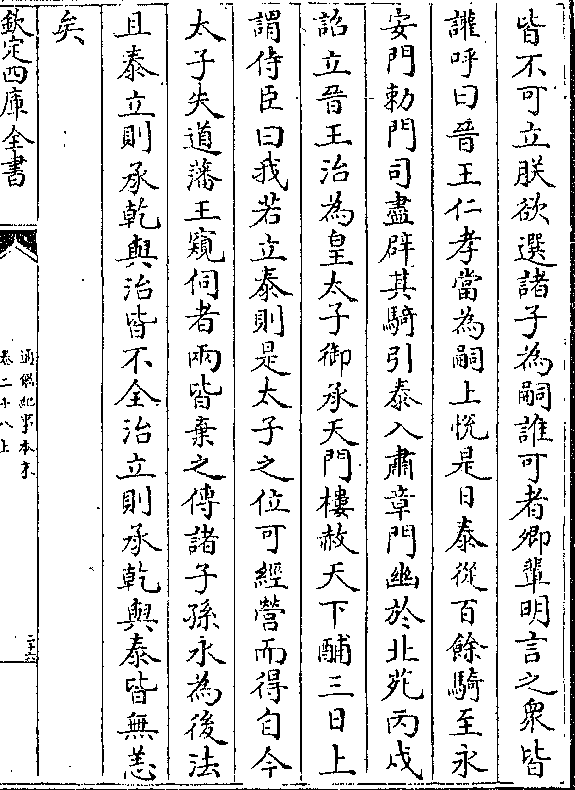 皆不可立朕欲選諸子為嗣誰可者卿輩明言之衆皆
讙呼曰晉王仁孝當為嗣上悦是日泰從百餘騎至永
安門勅門司盡辟其騎引泰入肅章門幽於北苑丙戌
詔立晉王治為皇太子御承天門樓赦天下酺三日上
謂侍臣曰我若立泰則是太子之位可經營而得自今
太子失道藩王窺伺者兩皆棄之傳諸子孫永為後法
且泰立則承乾與治皆不全治立則承乾與泰皆無恙
矣
欽定四庫全書
通鑑紀事本末
卷二十八上
二十六